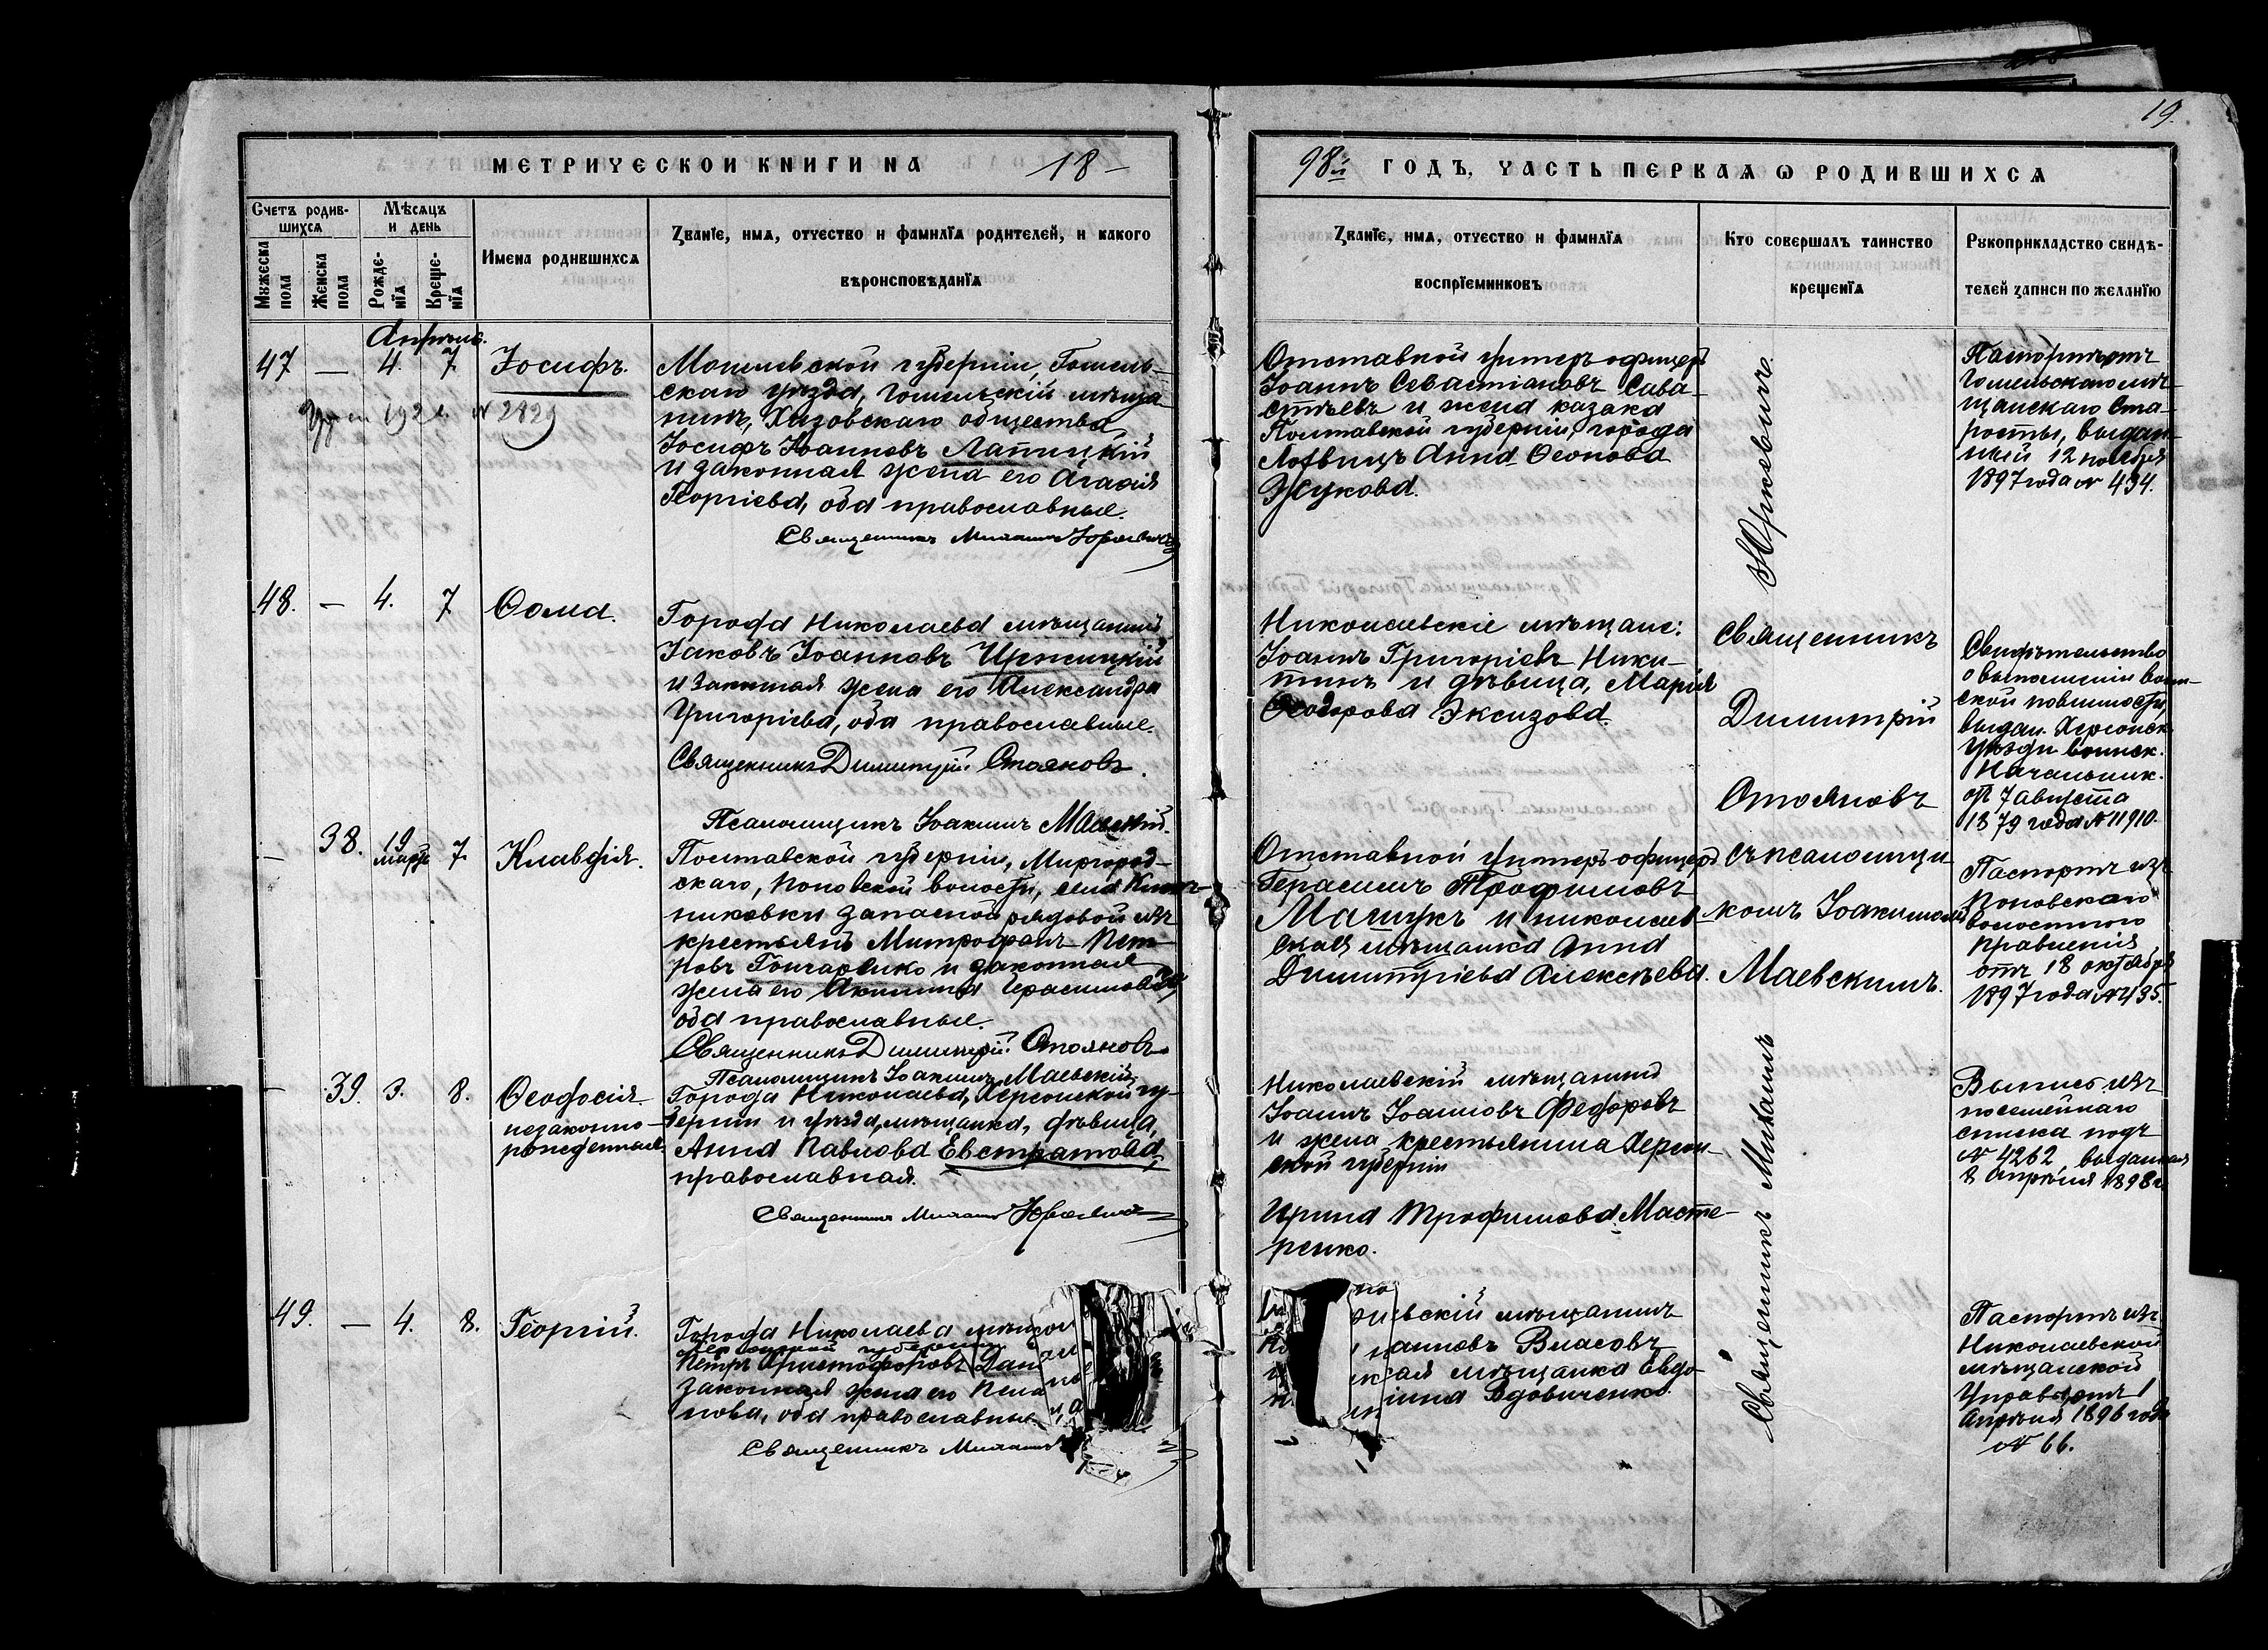 19.
МЕТРИЧЕСКОЙ КНИГИ НА 18-
98й ГОДЪ, ЧАСТЬ ПЕРВАЯ Ѡ РОДИВШИХСЯ
Счетъ родив-
шихся
Мужеска
пола
Женска
пола
Мѣсяцъ
и день
Рожде-
нїя
Креще-
нїя
Имена родившихся
Званїе, имя, отчество и фамилїя родителей, и какого
вѣроисповѣданїя
Званїе, имя, отчество и фамилїя
воспрїемниковъ
Кто совершалъ таинство
крещенїя
Рукоприкладство свидѣ-
телей записи по желанїю
Апрѣль.
47 — 4. 7. Іосифъ.
192 г. № 2829
Могилевской губерніи, Гомель-
скаго уѣзда, гомельскій мѣща-
нинъ, общества
Іосифъ Іоанновъ Лапицкій
и законная жена его Агафія
Георгіева, оба православные.
Священникъ Михаилъ Юркевичъ
Отставной унтеръ офицеръ
Іоаннъ Севастіановъ Сава-
стѣевъ и жена казака
Полтавской губерніи, города
Лохвицъ Анна Ѳеонова
Жукова.
Паспортъ отъ
Гомельскаго мѣ-
щанскаго Ста-
росты, выдан-
ный 12 ноября
1897 года № 434.
48. — 4. 7 Ѳома.
Города Николаева мѣщанинъ
Іаковъ Іоанновъ Иржицкій
и законная жена его Александра
Григоріева, оба православные.
Священникъ Димитрій Стояновъ.
Псаломщикъ Іоакимъ Маевскій.
Николаевскіе мѣщане:
Іоаннъ Григоріевъ Ники-
тинъ и дѣвица, Марія
Ѳеодорова Эксизова.
Священникъ
Димитрій
Стояновъ
съ псаломщи-
комъ Іоакимомъ
Маевскимъ.
Свидѣтельство
о выполненіи воин-
ской повинности,
выдан. Херсонск.
Уѣздн. воинск.
Начальник.
отъ 7 августа
1879 года № 11910.
— 38. 19 марта 7. Клавдія.
Полтавской губерніи, Миргород-
скаго, Поповской волости, села
запасной рядовой изъ
крестьянъ Митрофанъ Пет-
ровъ Гончаренко и законная
жена его Акилина Герасимова,
оба православные.
Священникъ Димитрій Стояновъ
Псаломщикъ Іоакимъ Маевскій
Отставной унтеръ офицеръ
Герасимъ Трофимовъ
Мащукъ и николаев-
ская мѣщанка Анна
Димитріева Алексѣева.
Паспортъ изъ
Поповскаго
волостного
правленія
отъ 18 октября
1897 года № 435.
— 39. 3. 8. Ѳеодосія
незаконно-
рожденная.
Города Николаева, Херсонской гу-
берніи и уѣзда, мѣщанка, дѣвица,
Анна Павлова Евстратова,
православная.
Священникъ Михаилъ Юркевичъ
Николаевскій мѣщанинъ
Іоаннъ Іоанновъ Федоровъ
и жена крестьянина Херсон-
ской губерніи
Ирина Трофимова Масте-
ренко.
Священникъ Михаилъ
Юркевичъ.
Выпись изъ
посемейнаго
списка подъ
№ 4262, выданная
8 Апрѣля 1898 г.
49. — 4. 8. Георгій.
Города Николаева
Херсонской губерніи
Петръ Христофоровъ Дан
законная жена его Пела
нова, оба православные
Священникъ Михаилъ
евскій мѣщанинъ
анновъ Власовъ
кая мѣщанка Евдо-
Вдовиченко.
Паспортъ изъ
Николаевской
мѣщанской
Управы отъ 1
Апрѣля 1896 года
№ 66.